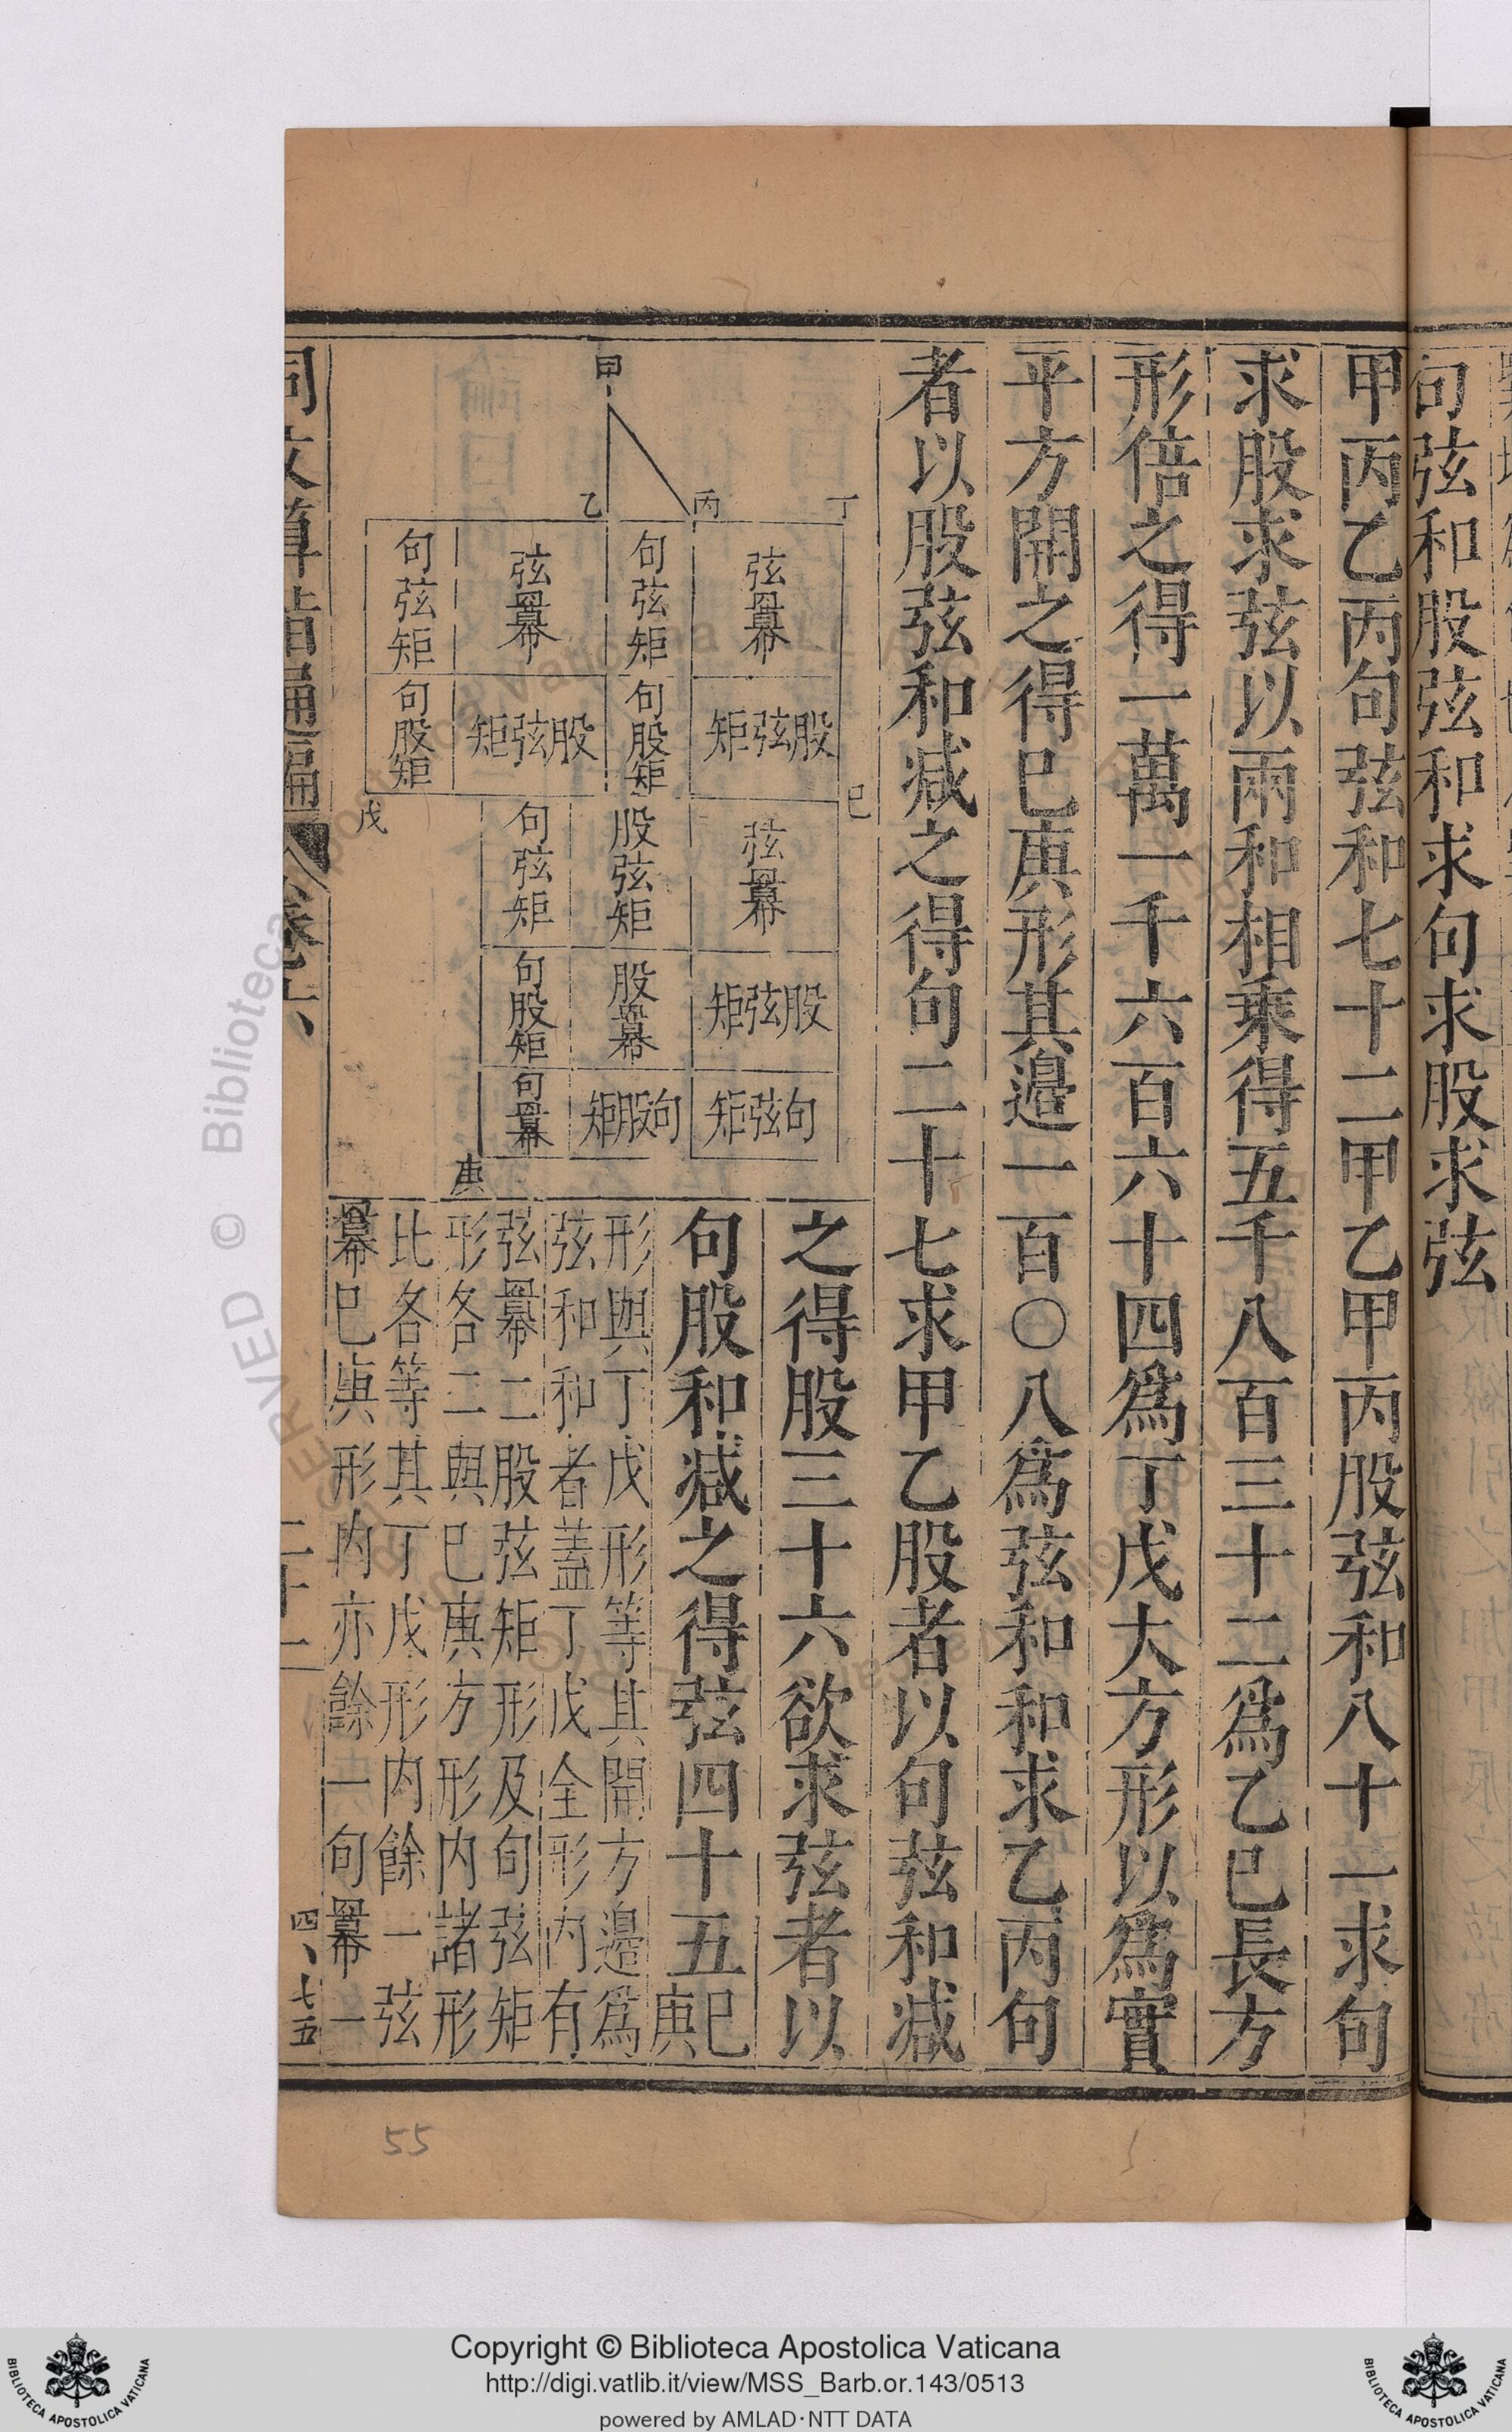 句弦和股弦和求句求股求弦
甲丙乙丙句弦和七十二甲乙甲丙股弦和八十一求句
求股求弦以兩和相乘得五千八百三十二爲乙巳長方
形倍之得一萬一千六百六十四爲丁戊大方形以爲實
平方開之得巳庚形其邉一百〇八爲弦和和求乙丙句
者以股弦和减之得句二十七求甲乙股者以句弦和减
之得股三十六欲求弦者以
句股和减之得弦四十五巳庚
形與丁戊形等其開方邉爲
弦和和者蓋丁戊全形內有
弦羃二股弦矩形及句弦矩
形各二與巳庚方形內諸形
比各等其丁戊形內餘一弦
羃巳庚形內亦餘一句羃一
甲
乙
丙
丁
弦羃
句弦矩
弦羃
句弦矩
股弦矩
句股矩
股弦矩
句股矩
巳
戊
弦羃
股弦矩
句弦矩
股弦矩
股羃
句股矩
句弦矩
句股矩
句羃
庚
同文算指通編
卷六
二十一
四、七五
55
Copyright © Biblioteca Apostolica Vaticana
http://digi.vatlib.it/view/MSS_Barb.or.143/0513
powered by AMLAD·NTT DATA
BIBLIOTECA APOSTOLICA VATICANA
BIBLIOTECA APOSTOLICA VATICANA